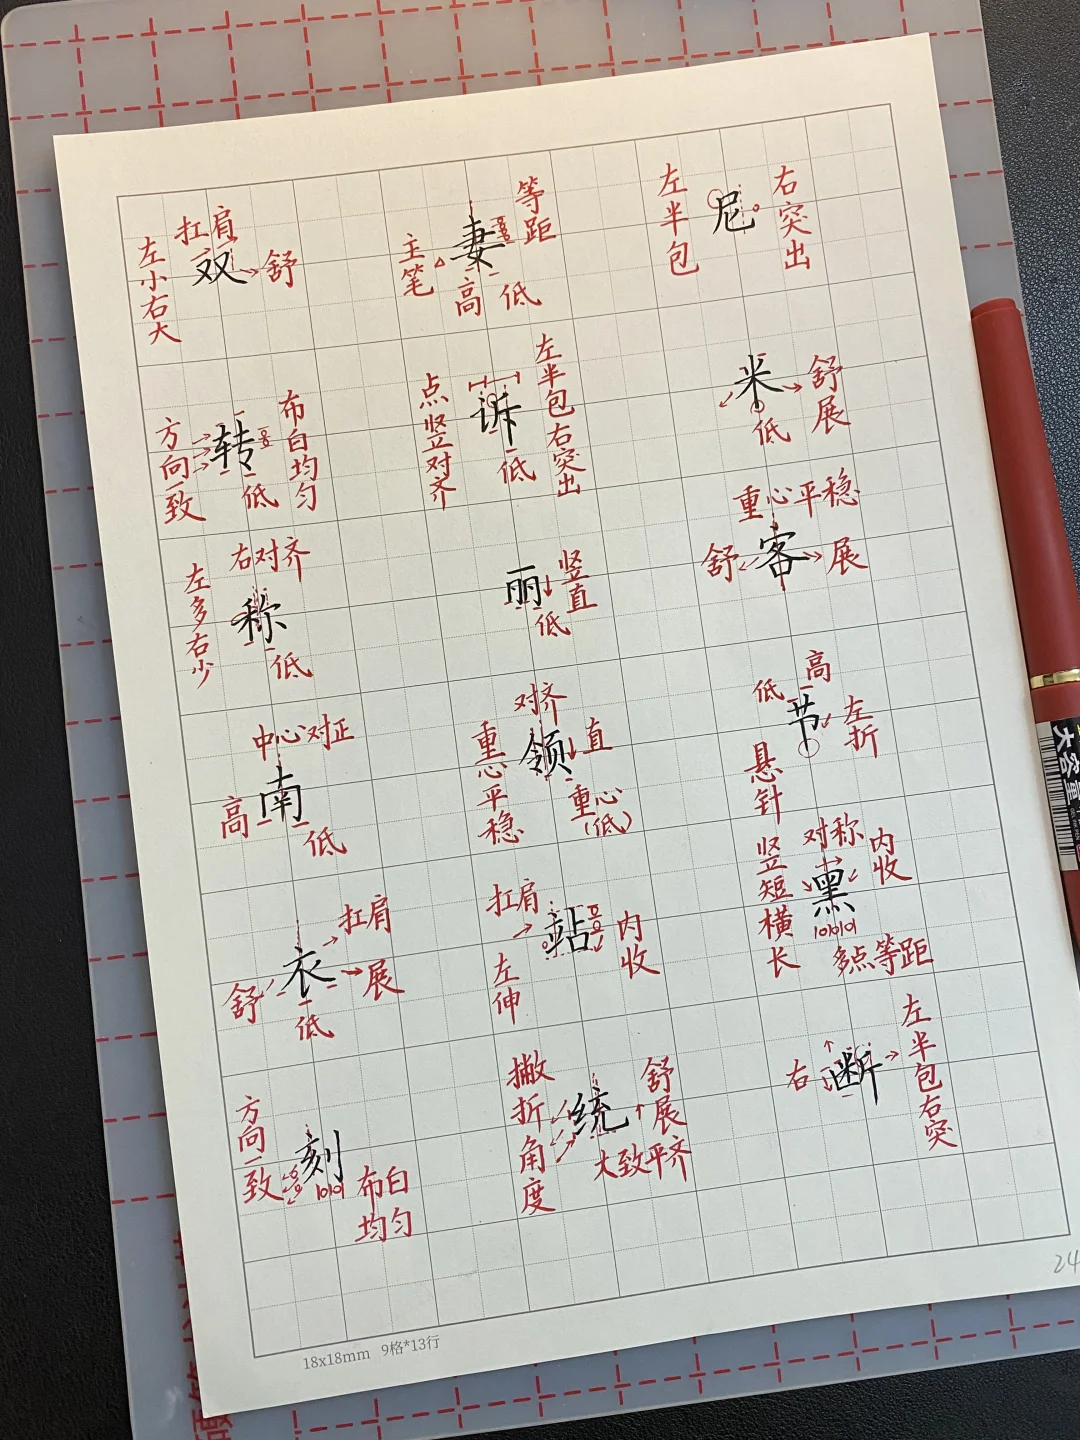 左小右大
扛肩
双
舒
主笔
妻
等距
高
低
左半包
尼
右突出
方向一致
转
布白均匀
低
点竖对齐
诉
左半包右突出
低
米
舒展
低
左多右少
右对齐
称
低
丽
竖直
低
重心平稳
舒
客
展
中心对正
南
高
低
对齐
重心平稳
领
直
重心
(低)
低
高
节
左折
悬针
扛肩
衣
舒
展
低
扛肩
站
左伸
内收
竖短横长
对称
黑
内收
多点等距
方向一致
刻
布白
均匀
撇折角度
统
舒展
大致平齐
右
断
左半包右突
大容量
24
18x18mm 9格*13行